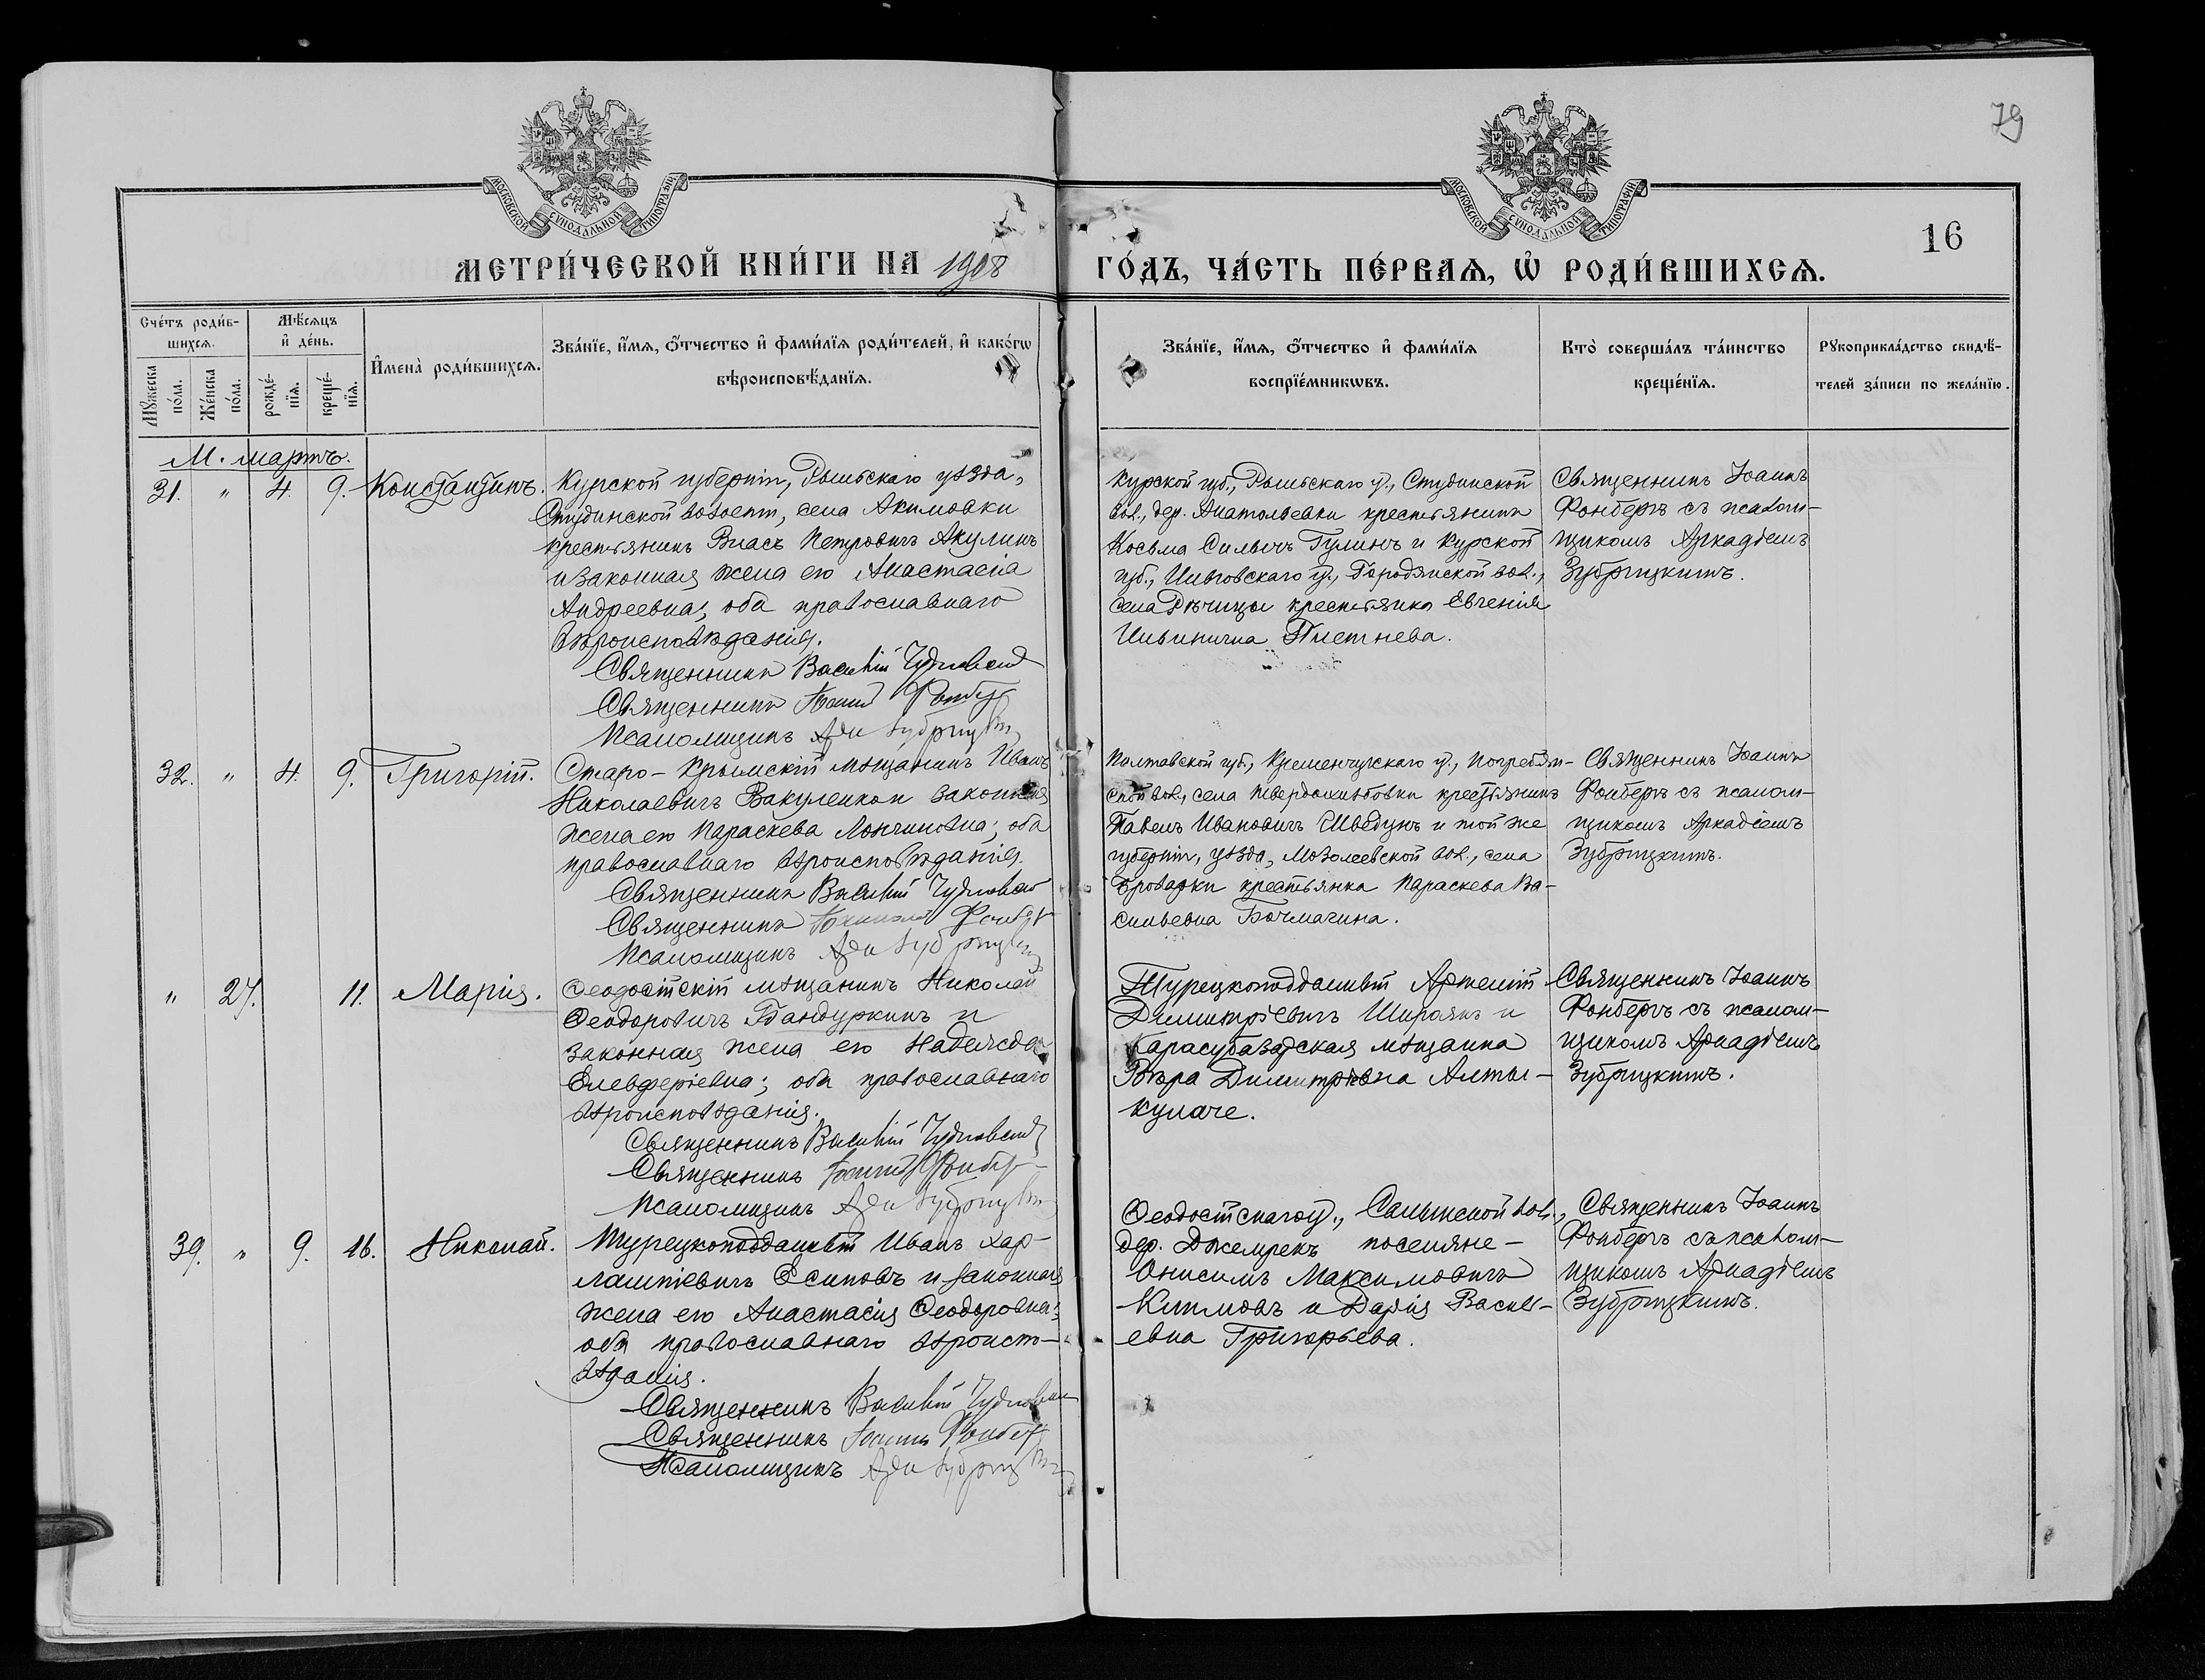 79
МОСКОВСКОЙ СѴНОДАЛЬНОЙ ТИПОГРАФІИ
МОСКОВСКОЙ СѴНОДАЛЬНОЙ ТИПОГРАФІИ
16
МЕТРИ́ЧЕСКОЙ КНИ́ГИ НА 1908
ГО́ДЪ, ЧА́СТЬ ПЕ́РВАѦ, Ѡ҆ РОДИ́ВШИХСѦ.
Сче́тъ роди́в-
шихсѧ.
Мꙋжеска по́ла.
Же́нска по́ла.
Мѣ́сѧцъ
и҆ де́нь.
рожде́-
нїѧ.
креще́-
нїѧ.
И҆мена̀ роди́вшихсѧ.
Зва́нїе, и҆́мѧ, ѻ҆́тчество и҆ фами́лїѧ роди́телей, и҆ како́гѡ
вѣроисповѣ́данїѧ.
Зва́нїе, и҆́мѧ, ѻ҆́тчество и҆ фами́лїѧ
воспрїе́мникѡвъ.
Кто̀ соверша́лъ та́инство
креще́нїѧ.
Рꙋкоприкла́дство свидѣ́-
телей за́писи по жела́нїю.
М. мартъ.
31. " 4. 9. Константинъ.
Курской губерніи, Рыльскаго уѣзда,
Студинской волости, села Акимовки
крестьянинъ Власъ Петровичъ Акулинъ
и законная жена его Анастасія
Андреевна, оба православнаго
вѣроисповѣданія.
Священникъ Василій Чудновскій
Священникъ Іоаннъ Фонбергъ
Псаломщикъ Зубрицкій
Курской губ., Рыльскаго у., Студинской
вол., дер. Анатольевки крестьянинъ
Косьма Силычъ Гулинъ и Курской
губ., Льговскаго у., Городянской вол.,
села Рѣчицы крестьянка Евгенія
Ильинична Плетнева.
Священникъ Іоаннъ
Фонбергъ съ псалом-
щикомъ Аркадіемъ
Зубрицкимъ.
32. " 4. 9. Григорій.
Старо-Крымскій мѣщанинъ Иванъ
Николаевичъ Вакуленко и законная
жена его Параскева Лонгиновна; оба
православнаго вѣроисповѣданія.
Священникъ Василій Чудновскій
Священникъ Іоаннъ Фонбергъ
Псаломщикъ Зубрицкій
Полтавской губ., Кременчугскаго у., Погребян-
ской вол., села крестьянинъ
Павелъ Ивановичъ Шведунъ и той же
губерніи, уѣзда, Мозолеевской вол., села
Броварки крестьянка Параскева Ва-
сильевна Бочмагина.
Священникъ Іоаннъ
Фонбергъ съ псалом-
щикомъ Аркадіемъ
Зубрицкимъ.
" 27. 11. Марія.
Ѳеодосійскій мѣщанинъ Николай
Ѳеодоровичъ Бандуркинъ и
законная жена его Надежда
Елевферіевна; оба православнаго
вѣроисповѣданія.
Священникъ Василій Чудновскій
Священникъ Іоаннъ Фонбергъ
Псаломщикъ Зубрицкій
Турецкоподданный
Димитріевичъ Широянъ и
Карасубазарская мѣщанка
Вѣра Димитріевна Алты-
кулаче.
Священникъ Іоаннъ
Фонбергъ съ псалом-
щикомъ Аркадіемъ
Зубрицкимъ.
39. " 9. 16. Николай.
Турецкоподданный Иванъ Хар-
лампіевичъ Осиповъ и законная
жена его Анастасія Ѳеодоровна;
оба православнаго вѣроиспо-
вѣданія.
Священникъ Василій Чудновскій
Священникъ Іоаннъ Фонбергъ
Псаломщикъ Зубрицкій
Ѳеодосійскаго у., Салынской вол.,
дер. Джемрекъ поселяне-
Онисимъ Максимовичъ
Климовъ и Дарія Василь-
евна Григорьева.
Священникъ Іоаннъ
Фонбергъ съ псалом-
щикомъ Аркадіемъ
Зубрицкимъ.